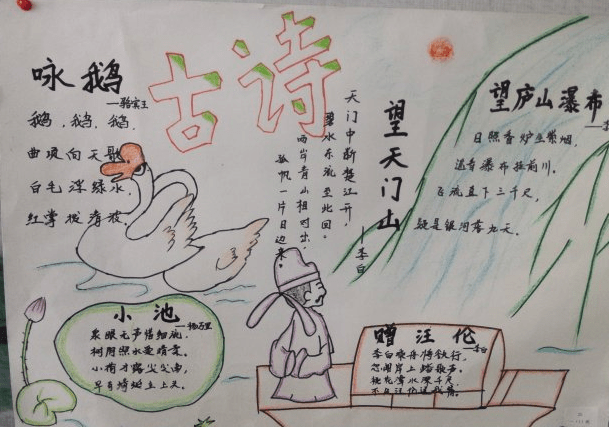 古诗
咏鹅
—骆宾王
鹅,鹅,鹅,
曲项向天歌
白毛浮绿水,
红掌拨清波.
天门中断楚江开,
碧水东流至此回.
两岸青山相对出,
孤帆一片日边来.
望天门山
—李白
望庐山瀑布
日照香炉生紫烟,
遥看瀑布挂前川.
飞流直下三千尺,
疑是银河落九天.
小池
—杨万里
泉眼无声惜细流,
树阴照水爱晴柔.
小荷才露尖尖角,
早有蜻蜓立上头.
赠汪伦
—李白
李白乘舟将欲行,
忽闻岸上踏歌声.
桃花潭水深千尺
不及汪伦送我情.